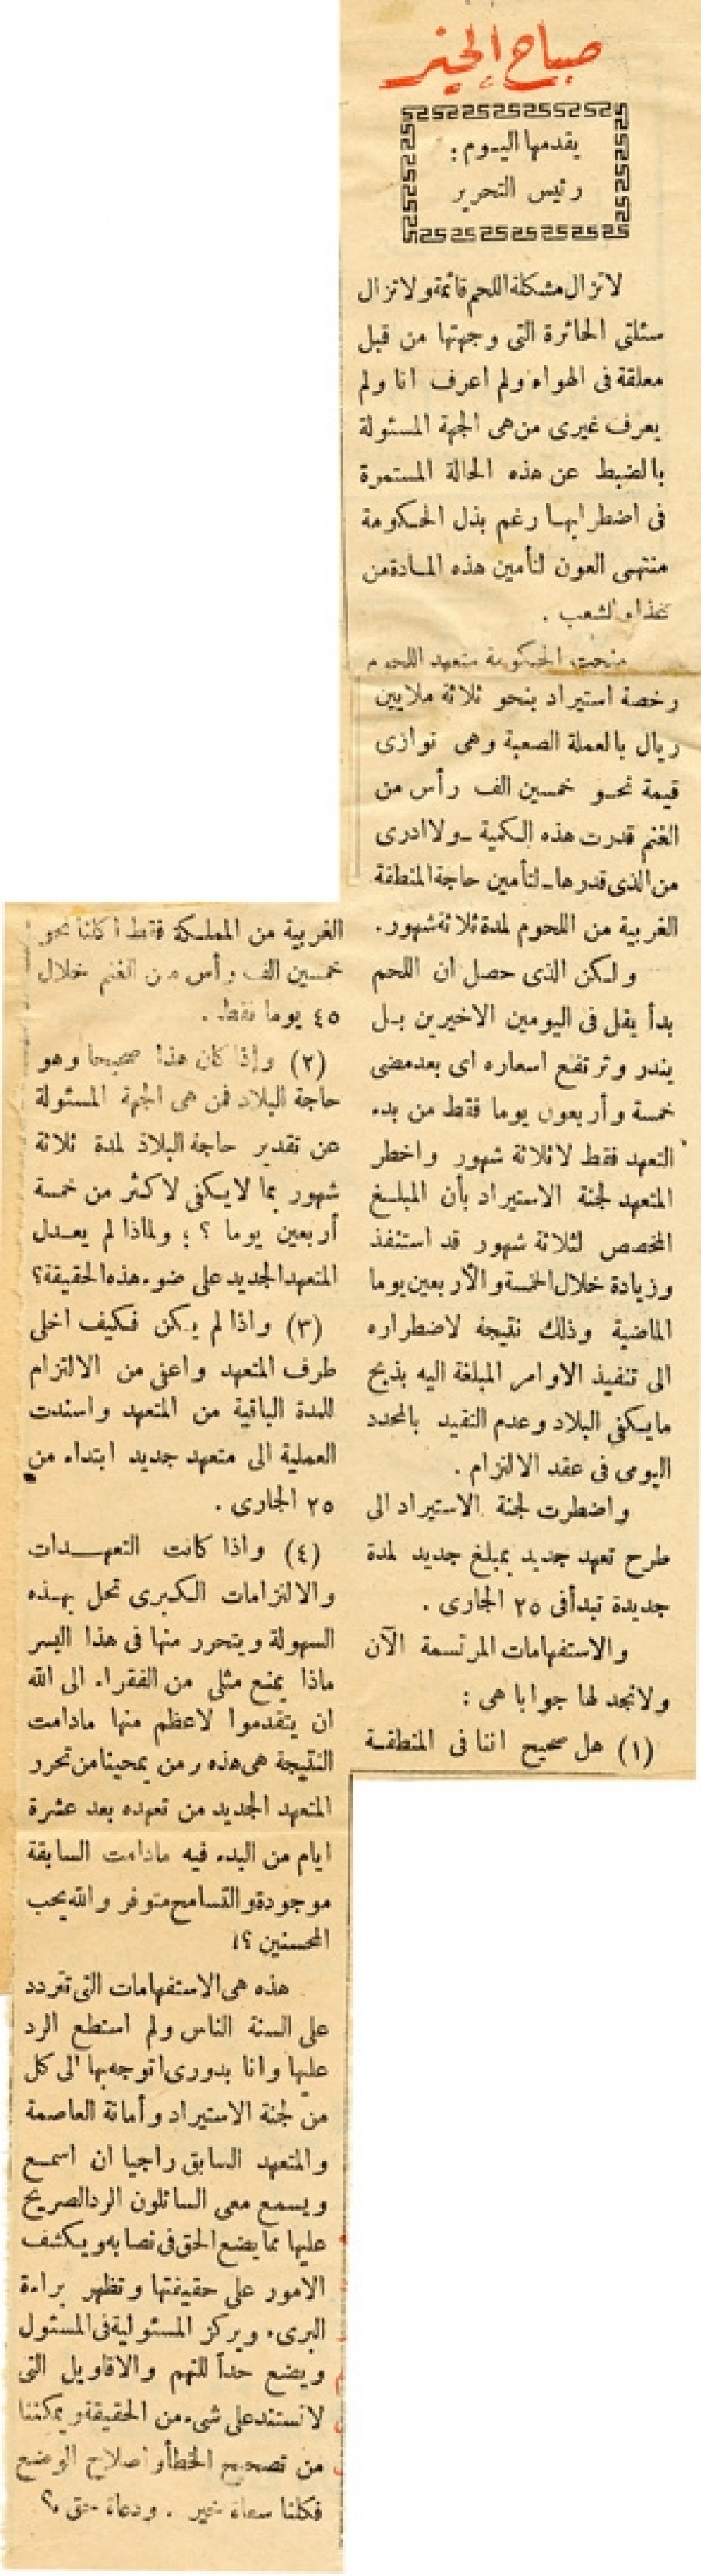 صباح الخير
يقدمها اليوم :
رئيس التحرير
لاتزال مشكلة اللحم قائمة ولاتزال
سئلتى الحائرة التى وجهتها من قبل
معلقة فى الهواء ولم اعرف انا ولم
يعرف غيرى من هى الجهة المسئولة
بالضبط عن هذه الحالة المستمرة
فى اضطرابها رغم بذل الحكومة
منتهى العون لتأمين هذه المادة من
غذاء الشعب .
منحت الحكومة متعهد اللحوم
رخصة استيراد بنحو ثلاثة ملايين
ريال بالعملة الصعبة وهى توازى
قيمة نحو خمسين الف رأس من
الغنم قدرت هذه الكمية ـ ولا ادرى
من الذى قدرها ـ لتأمين حاجة المنطقة
الغربية من اللحوم لمدة ثلاثة شهور .
ولكن الذى حصل ان اللحم
بدأ يقل فى اليومين الاخيرين بل
يندر وترتفع اسعاره اى بعد مضى
خمسة وأربعون يوما فقط من بدء
التعهد فقط لا ثلاثة شهور واخطر
المتعهد لجنة الاستيراد بأن المبلغ
المخصص لثلاثة شهور قد استنفذ
وزيادة خلال الخمسة والأربعين يوما
الماضية وذلك نتيجة لاضطراره
الى تنفيذ الاوامر المبلغة اليه بذبح
مايكفي البلاد وعدم التقيد بالمحدد
اليومى فى عقد الالتزام .
واضطرت لجنة الاستيراد الى
طرح تعهد جديد بمبلغ جديد لمدة
جديدة تبدأ فى ٢٥ الجارى .
والاستفهامات المرتسمة الآن
ولانجد لها جوابا هى :
(١) هل صحيح اننا فى المنطقة
الغربية من المملكة فقط أكلنا نحو
خمسين الف رأس من الغنم خلال
٤٥ يوما فقط .
(٢) وإذا كان هذا صحيحا وهو
حاجة البلاد فمن هى الجهة المسئولة
عن تقدير حاجة البلاد لمدة ثلاثة
شهور بما لايكفى لاكثر من خمسة
أربعين يوما ؟ ؛ ولماذا لم يعدل
المتعهد الجديد على ضوء هذه الحقيقة؟
(٣) واذا لم يكن فكيف اخلى
طرف المتعهد واعنى من الالتزام
للمدة الباقية من المتعهد واسندت
العملية الى متعهد جديد ابتداء من
٢٥ الجارى .
(٤) واذا كانت التعهدات
والالتزامات الكبرى تحل بهذه
السهولة ويتحرر منها فى هذا اليسر
ماذا يمنع مثلى من الفقراء الى الله
ان يتقدموا لاعظم منها مادامت
النتيجة هى هذه ومن يمحينا من تحرر
المتعهد الجديد من تعهده بعد عشرة
ايام من البدء فيه مادامت السابقة
موجودة والتسامح متوفر والله يحب
المحسنين ؟!
هذه هى الاستفهامات التى تتردد
على السنة الناس ولم استطع الرد
عليها وانا بدورى اتوجه بها الى كل
من لجنة الاستيراد وأمانة العاصمة
والمتعهد السابق راجيا ان اسمع
ويسمع معى السائلون الرد الصريح
عليها مما يضع الحق فى نصابه ويكشف
الامور على حقيقتها وتظهر براءة
البرىء ويركز المسئولية فى المسئول
ويضع حداً للتهم والاقاويل التى
لاتستند على شىء من الحقيقة ويمكننا
من تصحيح الخطأ واصلاح الوضع
فكلنا سعاة خير . ودعاة حق ؟